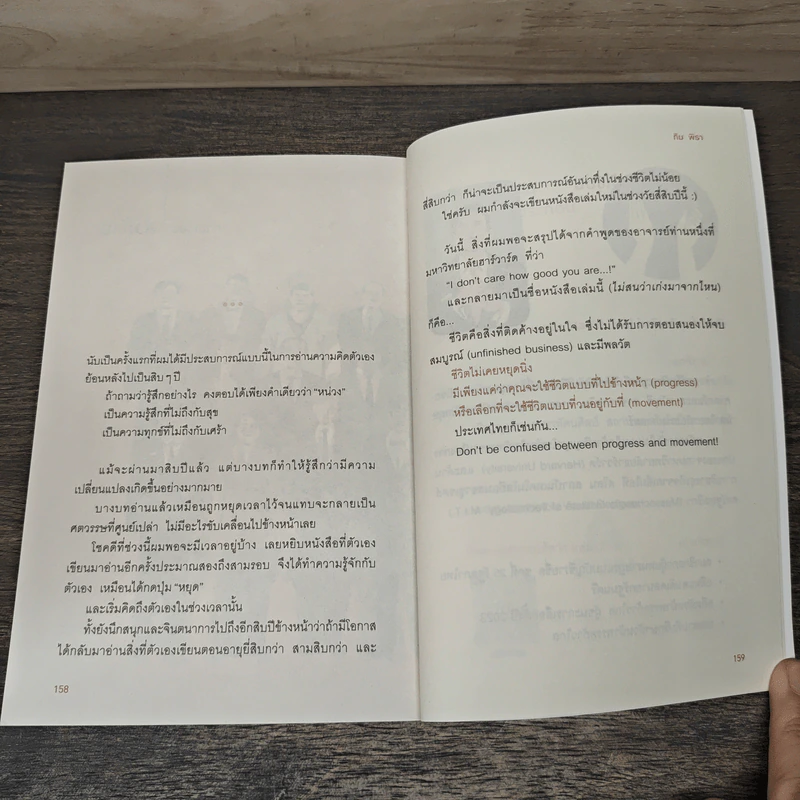 นับเป็นครั้งแรกที่ผมได้มีประสบการณ์แบบนี้ในการอ่านความคิดตัวเอง
ย้อนหลังไปเป็นสิบ ๆ ปี
ถ้าถามว่ารู้สึกอย่างไร คงตอบได้เพียงคำเดียวว่า "หน่วง"
เป็นความรู้สึกที่ไม่ถึงกับสุข
เป็นความทุกข์ที่ไม่ถึงกับเศร้า
แม้จะผ่านมาสิบปีแล้ว แต่บางบทก็ทำให้รู้สึกว่ามีความ
เปลี่ยนแปลงเกิดขึ้นอย่างมากมาย
บางบทอ่านแล้วเหมือนถูกหยุดเวลาไว้จนแทบจะกลายเป็น
ศตวรรษที่ศูนย์เปล่า ไม่มีอะไรขับเคลื่อนไปข้างหน้าเลย
โชคดีที่ช่วงนี้ผมพอจะมีเวลาอยู่บ้าง เลยหยิบหนังสือที่ตัวเอง
เขียนมาอ่านอีกครั้งประมาณสองถึงสามรอบ จึงได้ทำความรู้จักกับ
ตัวเอง เหมือนได้กดปุ่ม "หยุด"
และเริ่มคิดถึงตัวเองในช่วงเวลานั้น
ทั้งยังนึกสนุกและจินตนาการไปถึงอีกสิบปีข้างหน้าว่าถ้ามีโอกาส
ได้กลับมาอ่านสิ่งที่ตัวเองเขียนตอนอายุยี่สิบกว่า สามสิบกว่า และ
158
ทิม พิธา
สี่สิบกว่า ก็น่าจะเป็นประสบการณ์อันน่าทึ่งในช่วงชีวิตไม่น้อย
ใช่ครับ ผมกำลังจะเขียนหนังสือเล่มใหม่ในช่วงวัยสี่สิบปีนี้ :)
วันนี้ สิ่งที่ผมพอจะสรุปได้จากคำพูดของอาจารย์ท่านหนึ่งที่
มหาวิทยาลัยฮาร์วาร์ด ที่ว่า
"I don't care how good you are...!"
และกลายมาเป็นชื่อหนังสือเล่มนี้ (ไม่สนว่าเก่งมาจากไหน)
ก็คือ...
ชีวิตคือสิ่งที่ติดค้างอยู่ในใจ ซึ่งไม่ได้รับการตอบสนองให้จบ
สมบูรณ์ (unfinished business) และมีพลวัต
ชีวิตไม่เคยหยุดนิ่ง
มีเพียงแค่ว่าคุณจะใช้ชีวิตแบบที่ไปข้างหน้า (progress)
หรือเลือกที่จะใช้ชีวิตแบบที่วนอยู่กับที่ (movement)
ประเทศไทยก็เช่นกัน...
Don't be confused between progress and movement!
159